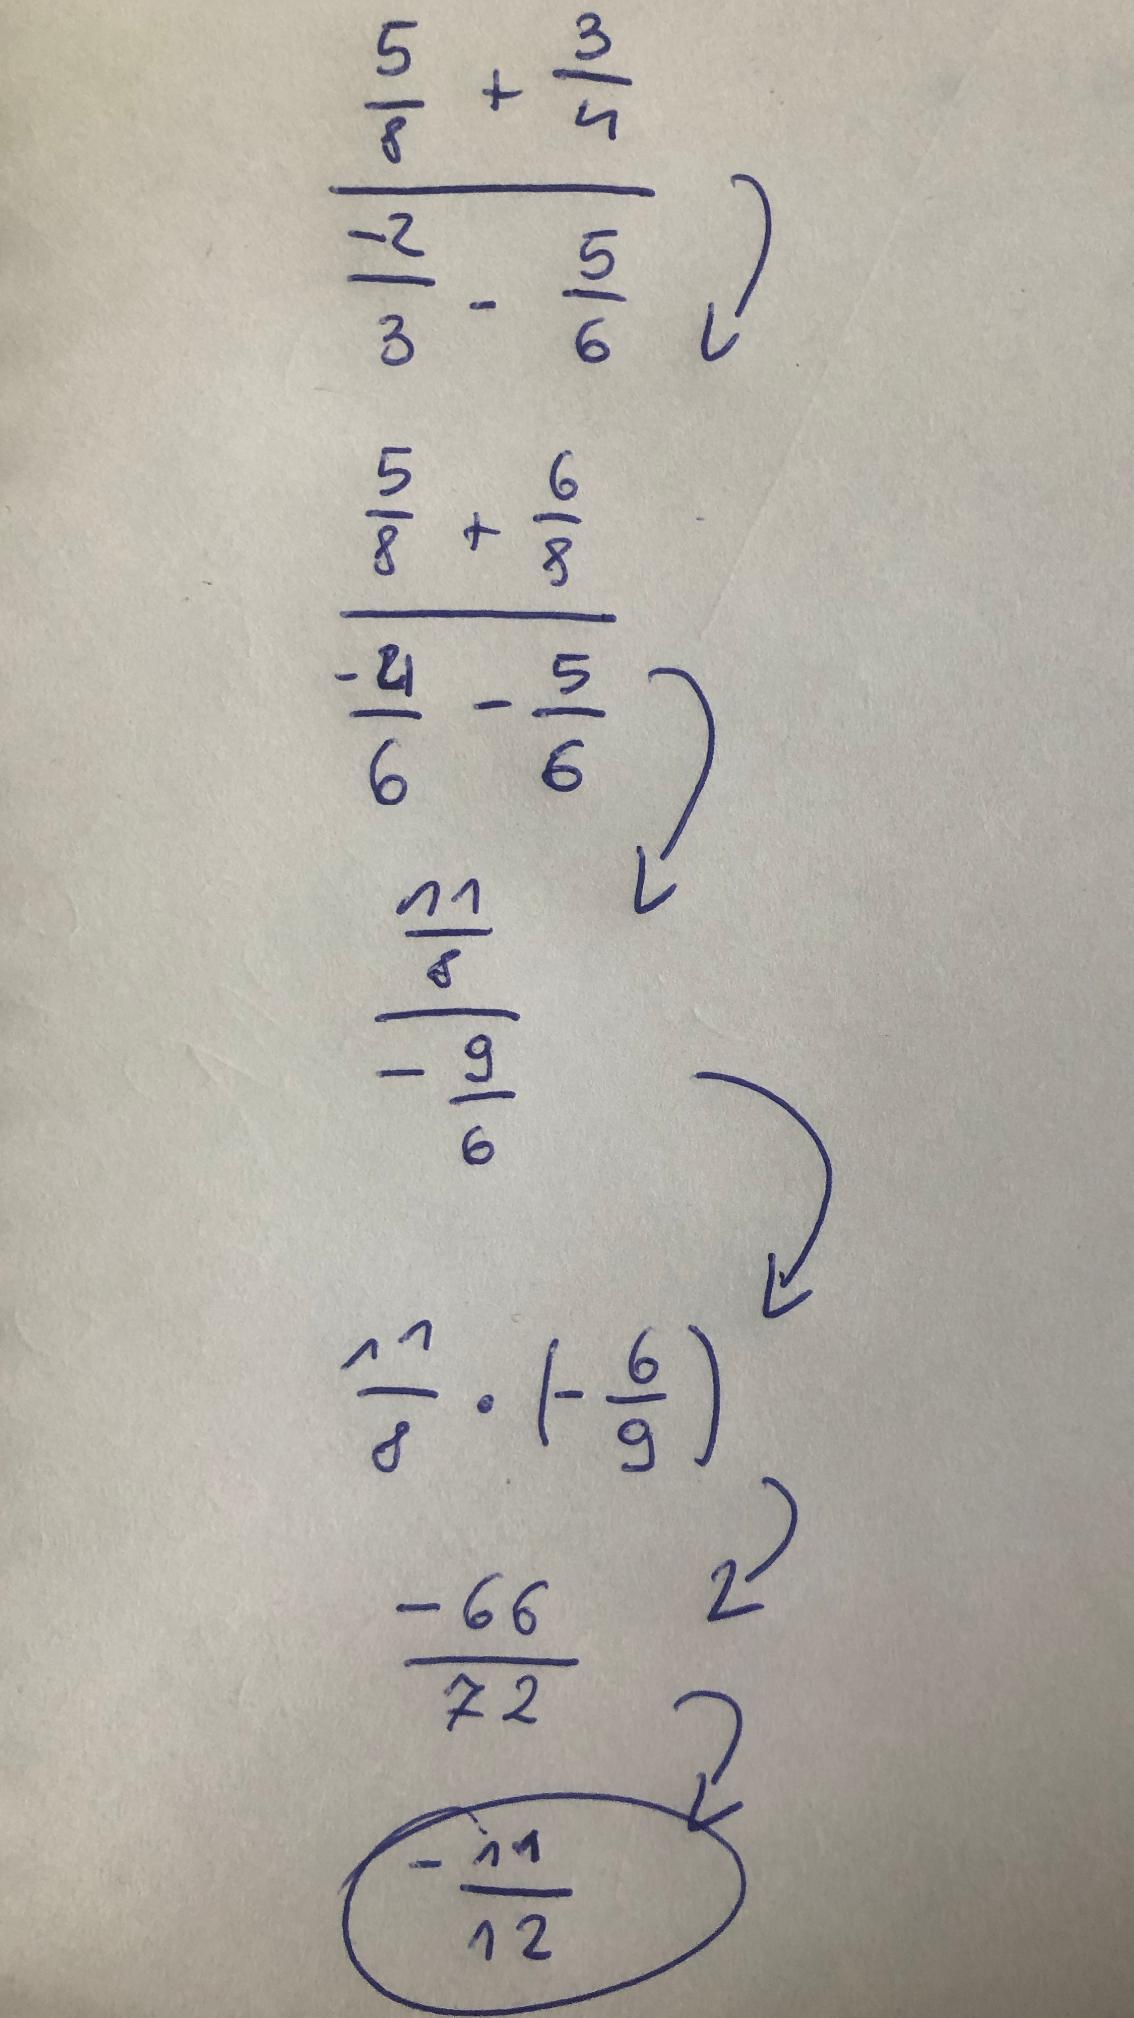 5/8 + 3/4
-2/3 - 5/6
5/8 + 6/8
-4/6 - 5/6
11/8
- 9/6
11/8 · (- 6/9)
-66/72
- 11/12